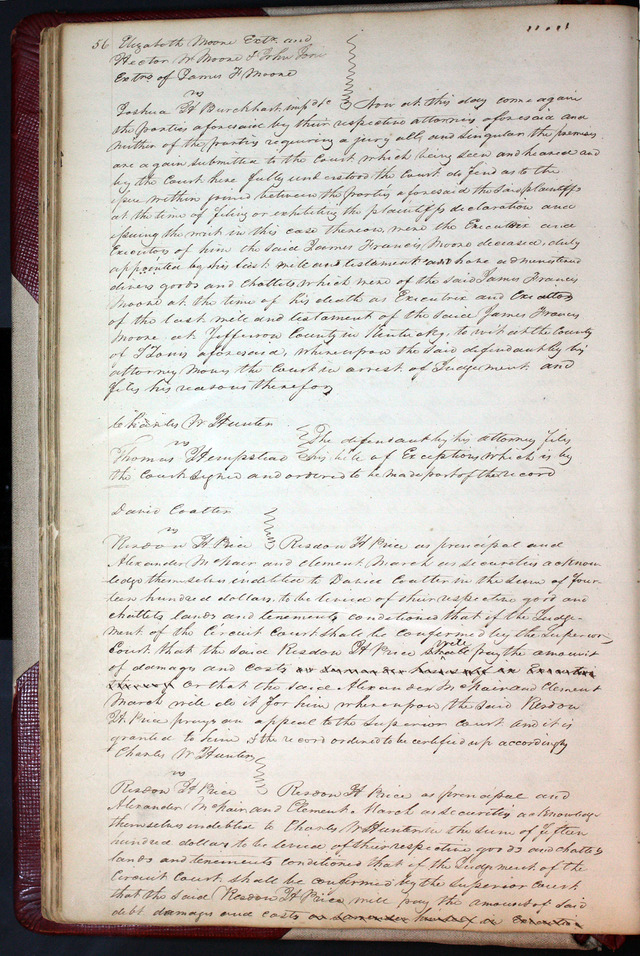 56 Elizabeth Moone Extx. and
Hector W Moone & John
Extrs of James F Moone
vs
Joshua H Burckhart impd &c Now at this day come again
the parties aforesaid by their respective attornies aforesaid and
neither of the parties requiring a jury all and singular the premises
are again submitted to the Court which being seen and heared and
by the Court here fully understood the Court do find as to the
issue within joined between the parties aforesaid the said plaintiffs
at the time of filing or exhibiting the plaintiffs declaration and
issuing the writ in this case thereon, were the Executrix and
Executors of him the said James Francis Moone deceased, duly
appointed by his last will and testament and have administered
divers goods and chattels which were of the said James Francis
Moone at the time of his death as Executrix and Executors
of the last will and testament of the said James Francis
Moone at Jefferson County in Kentucky, to wit at the County
of St Louis aforesaid, whereupon the said defendant by his
attorney moves the Court in arrest of Judgement and
files his reasons therefor

Charles W Hunter
vs The defendant by his attorney files
Thomas Hempstead his bill of Exceptions which is by
the Court signed and ordered to be made part of the record

David Coatter
vs
Risdon H Price Risdon H Price as principal and
Alexander McNair and Clement March as securities acknow
ledge themselves indebted to David Coatter in the sum of four
teen hundred dollars, to be levied of their respective good and
chattels lands and tenements conditioned that if the Judge-
ment of the Circuit Court shall be confirmed by the Superior
Court that the said Risdon H Price will pay the amount
of damages and costs or surrender himself in Execution
or that the said Alexander McNair and Clement
March will do it for him whereupon the said Risdon
H Price prays an appeal to the Superior Court and it is
granted to him & the record ordered to be certified up accordingly
Charles W Hunter
vs
Risdon H Price Risdon H Price as principal and
Alexander McNair and Clement March as securities acknowledge
themselves indebted to Charles W Hunter in the sum of fifteen
hundred dollars to be levied of their respective goods and chattels
lands and tenements conditioned that if the Judgement of the
Circuit Court shall be confirmed by the Superior Court
that the said Risdon H Price will pay the amount of said
debt damages and costs or surrender himself in Execution